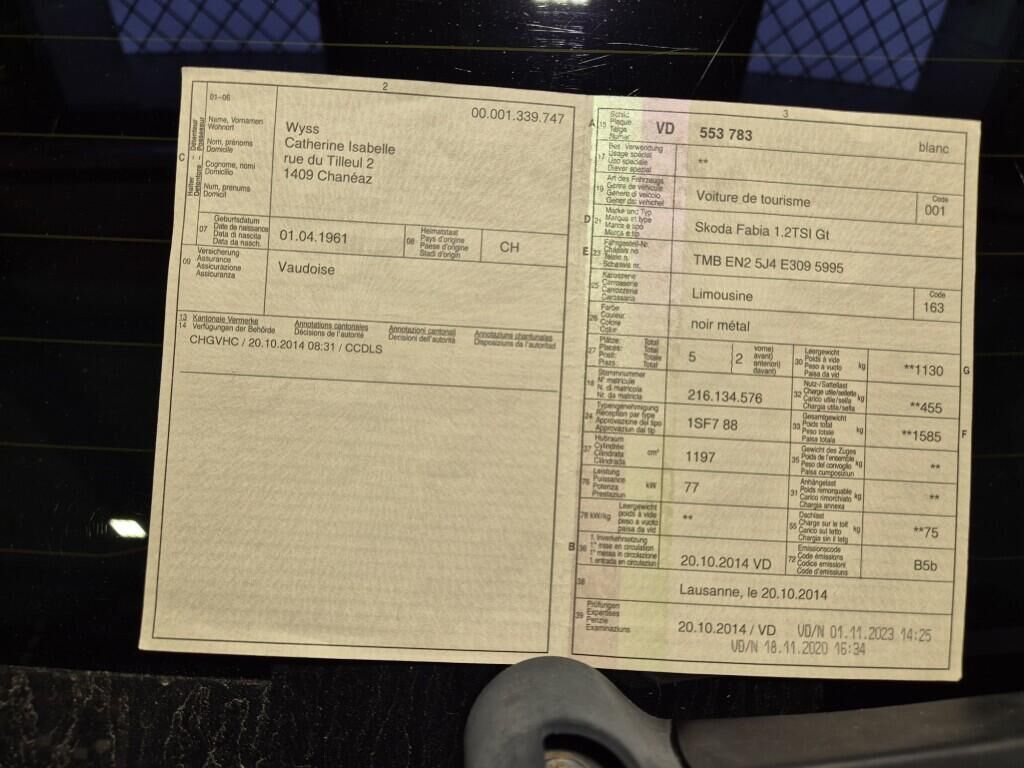 2
00.001.339.747
C
Détenteur
Possessur
Halter
Detentore
01-06
Name, Vornamen
Wohnort
Nom, prénoms
Domicile
Cognome, nomi
Domicilio
Num, prenums
Domicil
Wyss
Catherine Isabelle
rue du Tilleul 2
1409 Chanéaz
07
Geburtsdatum
Date de naissance
Data di nascita
Data da nasch.
01.04.1961
08
Heimatstaat
Pays d'origine
Paese d'origine
Stadi d'origin
CH
09
Versicherung
Assurance
Assicurazione
Assicuranza
Vaudoise
13
14
Kantonale Vermerke
Verfügungen der Behörde
Annotations cantonales
Décisions de l'autorité
Annotazioni cantonali
Decisioni dell'autorità
Annotaziuns chantunalas
Disposiziuns da l'autoritad
CHGVHC / 20.10.2014 08:31 / CCDLS
3
A
15
Schild
Plaque
Targa
Numer
VD
553 783
blanc
17
Bes. Verwendung
Usage spécial
Uso speciale
Diever spezial
**
19
Art des Fahrzeugs
Genre de véhicule
Genere di veicolo
Gener dal vehichel
Voiture de tourisme
Code
001
D
21
Marke und Typ
Marque et type
Marca e tipo
Marca e tip
Skoda Fabia 1.2TSI Gt
E
23
Fahrgestell-Nr.
Châssis no
Telaio n.
Schassis nr.
TMB EN2 5J4 E309 5995
25
Karosserie
Carrosserie
Carrozzeria
Carossaria
Limousine
Code
163
26
Farbe
Couleur
Colore
Colur
noir métal
27
Plätze: Total
Places: Total
Posti: Totale
Plazs: Total
5
2
vorne)
avant)
anteriori)
davant)
30
Leergewicht
Poids à vide
Peso a vuoto
Paisa da vid
kg
**1130
G
18
Stammnummer
N° matricule
N. di matricola
Nr. da matricla
216.134.576
32
Nutz-/Sattellast
Charge utile/sellette
Carico utile/sella
Chargia utila/sella
kg
**455
24
Typengenehmigung
Réception par type
Approvazione del tipo
Approvaziun dal tip
1SF7 88
33
Gesamtgewicht
Poids total
Peso totale
Paisa totala
kg
**1585
F
37
Hubraum
Cylindrée
Cilindrata
Cilindrada
cm³
1197
35
Gewicht des Zuges
Poids de l'ensemble
Peso del convoglio
Paisa cumposiziun
kg
**
76
Leistung
Puissance
Potenza
Prestaziun
kW
77
31
Anhängelast
Poids remorquable
Carico rimorchiato
Chargia annexa
kg
**
78 kW/kg
Leergewicht
poids à vide
peso a vuoto
paisa da vid
**
55
Dachlast
Charge sur le toit
Carico sul tetto
Chargia sin il tetg
kg
**75
B
36
1. Inverkehrsetzung
1re mise en circulation
1a messa in circolazione
1. entrada en circulaziun
20.10.2014 VD
72
Emissionscode
Code émissions
Codice emissioni
Code d'emissiuns
B5b
38
Lausanne, le 20.10.2014
39
Prüfungen
Expertises
Perizie
Examinaziuns
20.10.2014 / VD
VD/N 01.11.2023 14:25
VD/N 18.11.2020 16:34